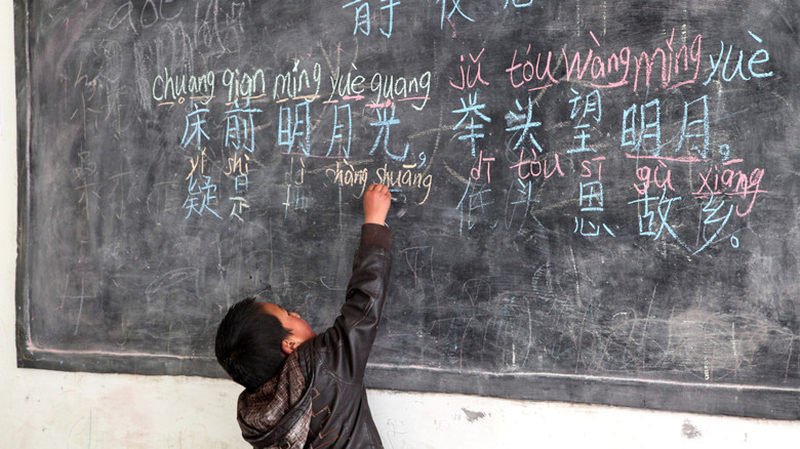 静夜
chuang qian míng yuè guang jǔ tóu wàng míng yuè
床前明月光， 举头望明月，
yí shì shuāng dī tóu sī gù xiāng
疑是 低头思故乡。